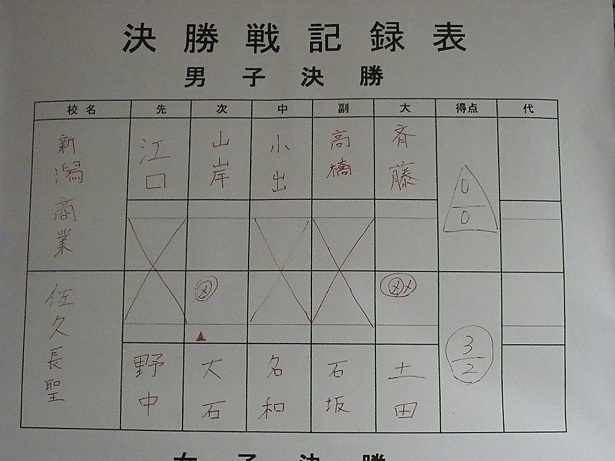 決勝戦記録表
男子決勝
校名 先 次 中 副 大 得点 代
新潟商業 江口 山岸 小出 高橋 斉藤 0/0
メ メメ
佐久長聖 野中 大石 名和 石坂 土田 3/2
女子決勝